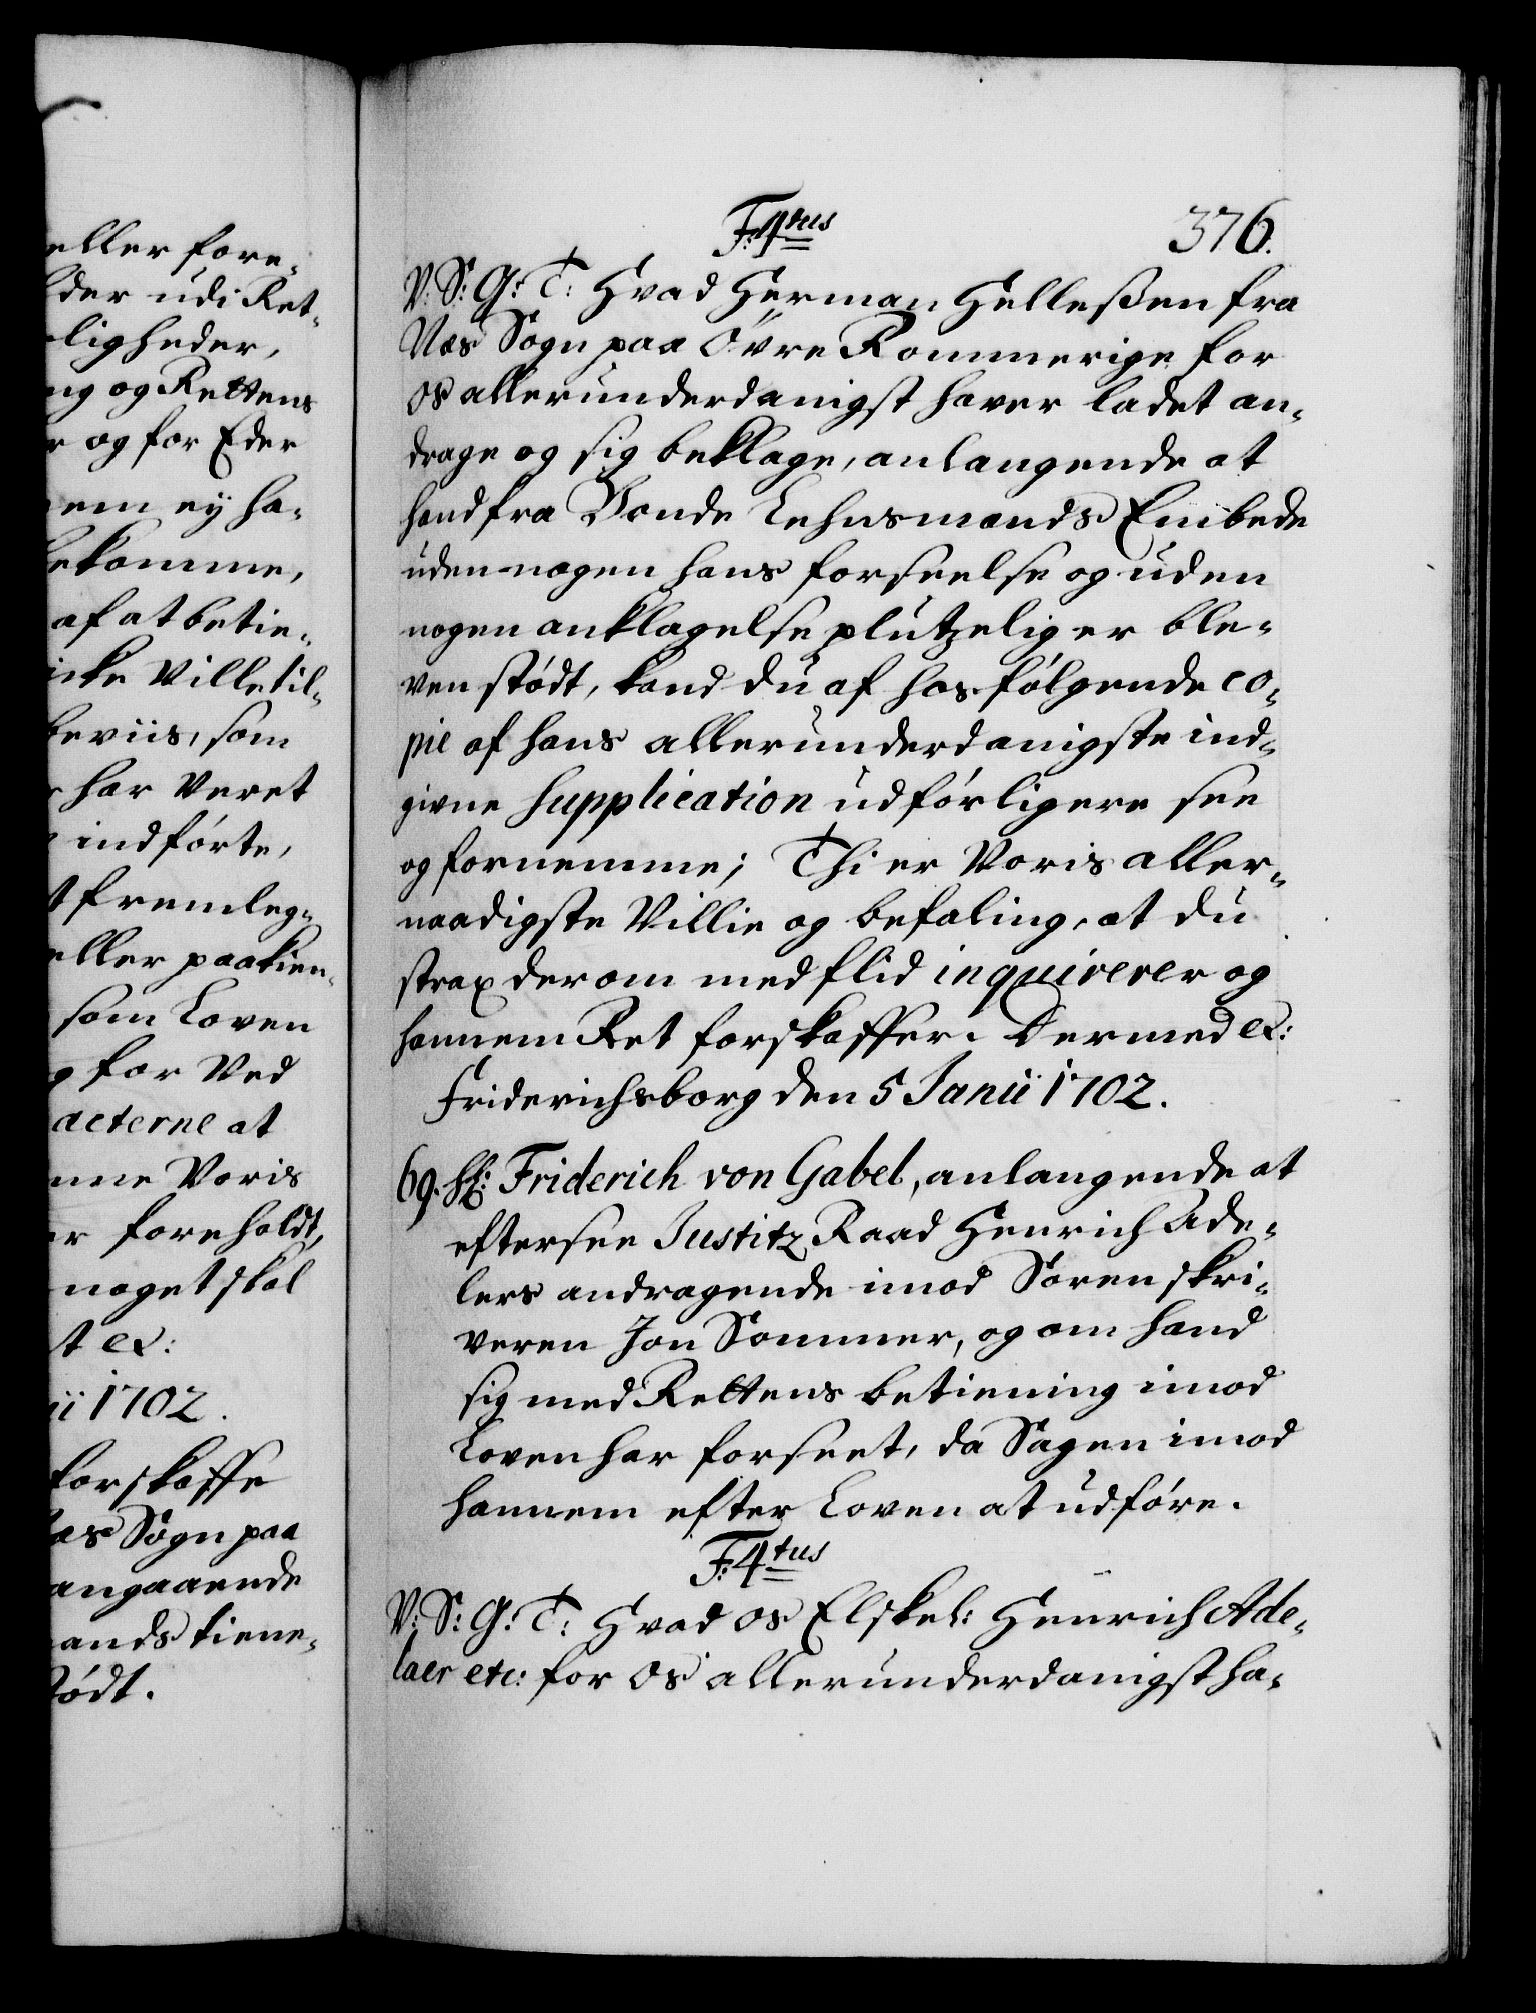 eller fore-
lder udi Ret-
ligheder,
ng og Rettens
r og for Eder
nem eÿ ha-
bekomme,
af at betie-
icke Ville til-
beviis, som
r har Veret
indförte,
t fremleg-
eller paakien-
som Loven
g for Ved
acterne at
nne Voris
er foreholdt,
noget skal
t ex:
ii 1702.
forskaffe
Næs Sogn paa
angaaende
ands tiene-
stödt.
376.
F:4tus
V: S: G: T: Hvad Herman Helleßen fra
Næs Sogn paa Övre Rommerige for
os allerunderdanigst haver ladet an-
drage og sig beklage, anlangende at
hand fra Bonde Lehnsmands Embede
uden nogen hans forseelse og uden
nogen anklagelse plutzelig er ble-
ven stödt, kand du af hosfölgende co-
pie af hans allerunderdanigste ind-
givne Supplication udförligere see
og fornemme; Thi er Voris aller-
naadigste Villie og befaling, at du
strax derom med flid inquirerer og
hannem Ret forskaffer. Dermed ex:
Friderichsborg den 5 Junii 1702.
69. Hl: Friderich von Gabel, anlangende at
eftersee Justitz Raad Henrich Ade-
lers andragende imod Sorenskri-
veren Jon Sommer, og om hand
sig med Rettens betiening imod
Loven har forseet, da Sagen imod
hannem efter Loven at udföre.
F:4tus
V: S: G: T: Hvad os Elskel: Henrich Ade-
laer etc: for os allerunderdanigst ha-